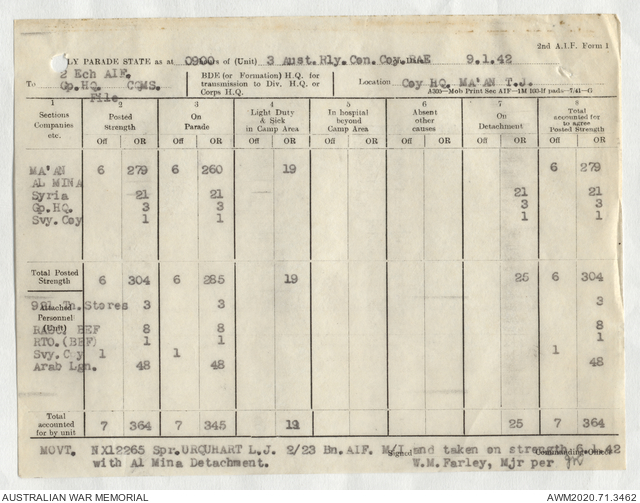 2nd A.I.F. Form 1
LY PARADE STATE as at 0900 s of (Unit) 3 Aust.Rly.Con.Coy.RAE 9.1.42
To 2 Ech AIF. Gp.HQ. CQMS. File
BDE (or Formation) H.Q. for transmission to Div. H.Q. or Corps H.Q.
Location Coy HQ. MA'AN T.J.
A305—Mob Print Sec AIF—1M 100-lf pads—7/41—G
1 2 3 4 5 6 7 8
Sections Companies etc. Posted Strength On Parade Light Duty & Sick in Camp Area In hospital beyond Camp Area Absent other causes On Detachment Total accounted for to agree Posted Strength
Off OR Off OR Off OR Off OR Off OR Off OR Off OR
MA'AN 6 279 6 260 19 6 279
AL MINA
Syria 21 21 21 21
Gp.HQ. 3 3 3 3
Svy.Coy 1 1 1 1
Total Posted Strength 6 304 6 285 19 25 6 304
Tn.Stores 3 3 3
Attached Personnel (Unit)
RASC. BEF 8 8 8
RTO.(BEF) 1 1 1
Svy.Coy 1 1 1
Arab Lgn. 48 48 48
Total accounted for by unit 7 364 7 345 19 25 7 364
MOVT. NX12265 Spr.URQUHART L.J. 2/23 Bn.AIF. M/I and taken on strength 6.1.42
with Al Mina Detachment.
Signed W.M.Farley, Mjr per
Commanding Officer
AUSTRALIAN WAR MEMORIAL AWM2020.71.3462